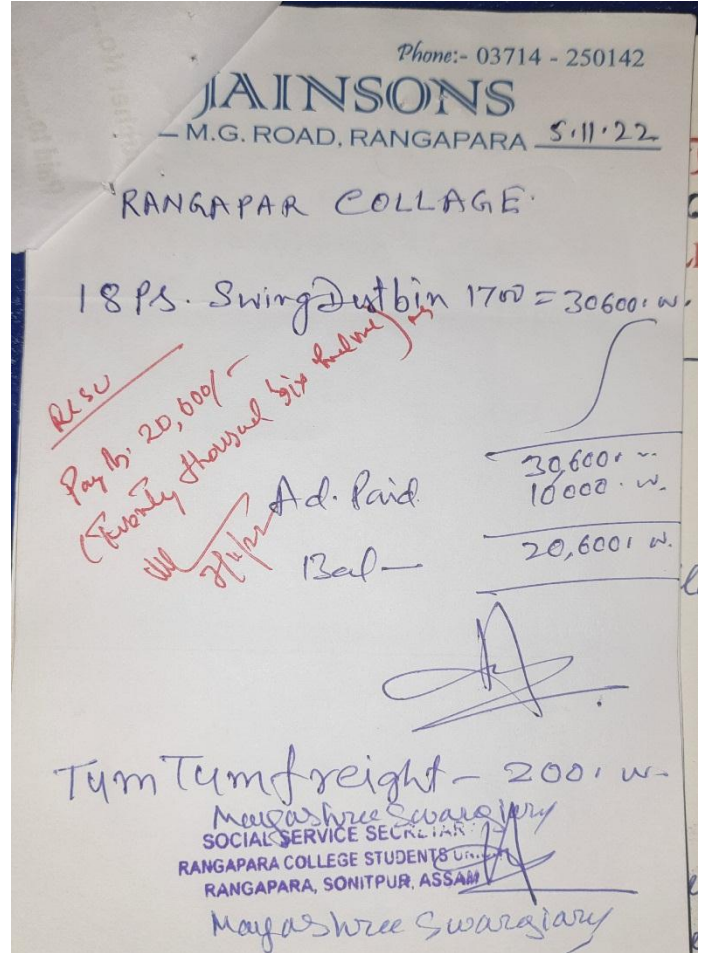 Phone:- 03714 - 250142
JAINSONS
M.G. ROAD, RANGAPARA 5.11.22
RANGAPAR COLLAGE
18 Ps. Swing Dustbin 1700 = 30600.00
RCSU
Pay Rs. 20,600/-
(Twenty thousand six hundred)
30,600.00
Ad. Paid 10000.00
Bal — 20,600.00
Tum Tum freight - 200.00
Mayashree Swargiary
SOCIAL SERVICE SECRETARY
RANGAPARA COLLEGE STUDENTS
RANGAPARA, SONITPUR, ASSAM
Mayashree Swargiary